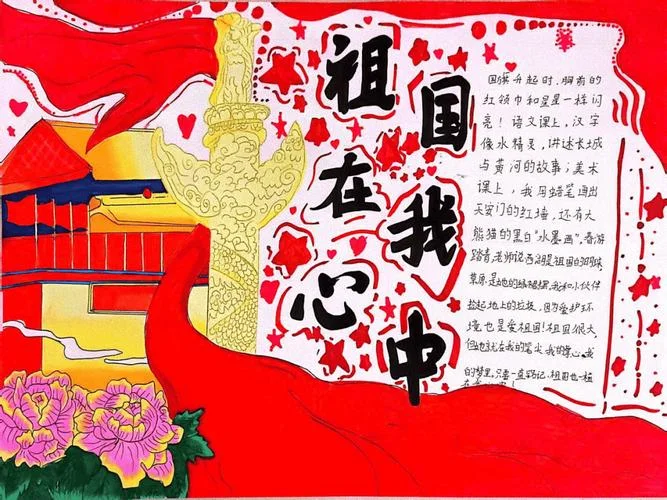 祖国在我心中
国旗升起时,胸前的
红领巾和星星一样闪
亮!语文课上,汉字
像水精灵,讲述长城
与黄河的故事;美术
课上,我用蜡笔画出
天安门的红墙,还有大
熊猫的黑白“水墨画”,春游
踏青,老师说西湖是祖国的明眸,
草原是她的绿裙摆,我和小伙伴
捡起地上的垃圾,因为爱护环
境也是爱祖国!祖国很大,
但她就在我的笔尖、我的掌心、我
的梦里,只要一直铭记,祖国也一直